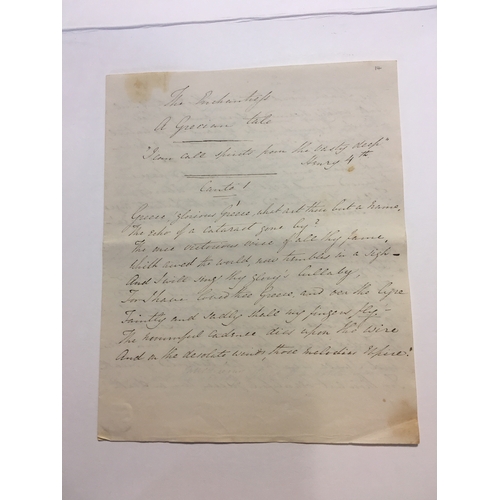 The Enchantress
A Grecian tale
"I can call spirits from the vasty deep"
Henry 4th
Canto 1
Greece, glorious Greece, what art thou but a name,
The echo of a cataract gone by?
The once victorious voice of all thy fame,
Which awed the world, now trembles in a sigh—
And I will sing thy glory's lullaby,
For I have loved thee Greece, and o'er the lyre
Faintly and sadly shall my fingers fly:
The mournful cadence dies upon the wire
And on the desolate winds, those melodies expire.